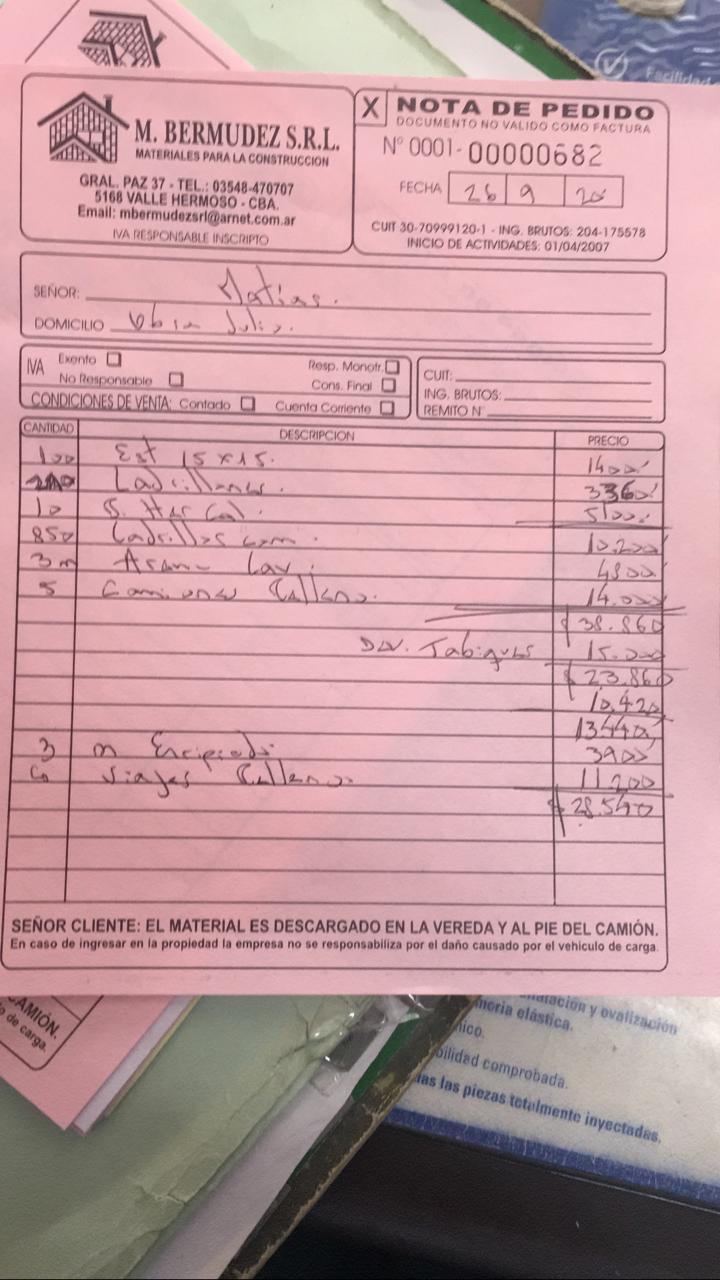 Facilidad
M. BERMUDEZ S.R.L.
MATERIALES PARA LA CONSTRUCCION
GRAL. PAZ 37 - TEL.: 03548-470707
5168 VALLE HERMOSO - CBA.
Email: mbermudezsrl@arnet.com.ar
IVA RESPONSABLE INSCRIPTO
X NOTA DE PEDIDO
DOCUMENTO NO VALIDO COMO FACTURA
Nº 0001-00000682
FECHA 26 9 20
CUIT 30-70999120-1 - ING. BRUTOS: 204-175578
INICIO DE ACTIVIDADES: 01/04/2007
SEÑOR: Matias.
DOMICILIO Obra Julio.
IVA Exento
No Responsable
Resp. Monotr.
Cons. Final
CONDICIONES DE VENTA: Contado Cuenta Corriente
CUIT:
ING. BRUTOS:
REMITO N°
CANTIDAD DESCRIPCION PRECIO
100 Est 15x15. 1400
Ladrillones. 3360
10 5100
850 Ladrillos com. 10.200
3 m Arena Lav. 4800
5 Camiones Relleno. 14.000
$ 38.860
Dev. Tabiques 15.000
$ 23.860
10.420
13440
3 m Encipcado 3900
4 Viajes Relleno 11.200
$ 28.540
SEÑOR CLIENTE: EL MATERIAL ES DESCARGADO EN LA VEREDA Y AL PIE DEL CAMIÓN.
En caso de ingresar en la propiedad la empresa no se responsabiliza por el daño causado por el vehiculo de carga.
CAMIÓN.
de carga.
y ovalización
elástica.
comprobada.
las piezas totalmente inyectadas.